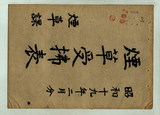 煙草課
煙草受拂表
昭和十九年二月分